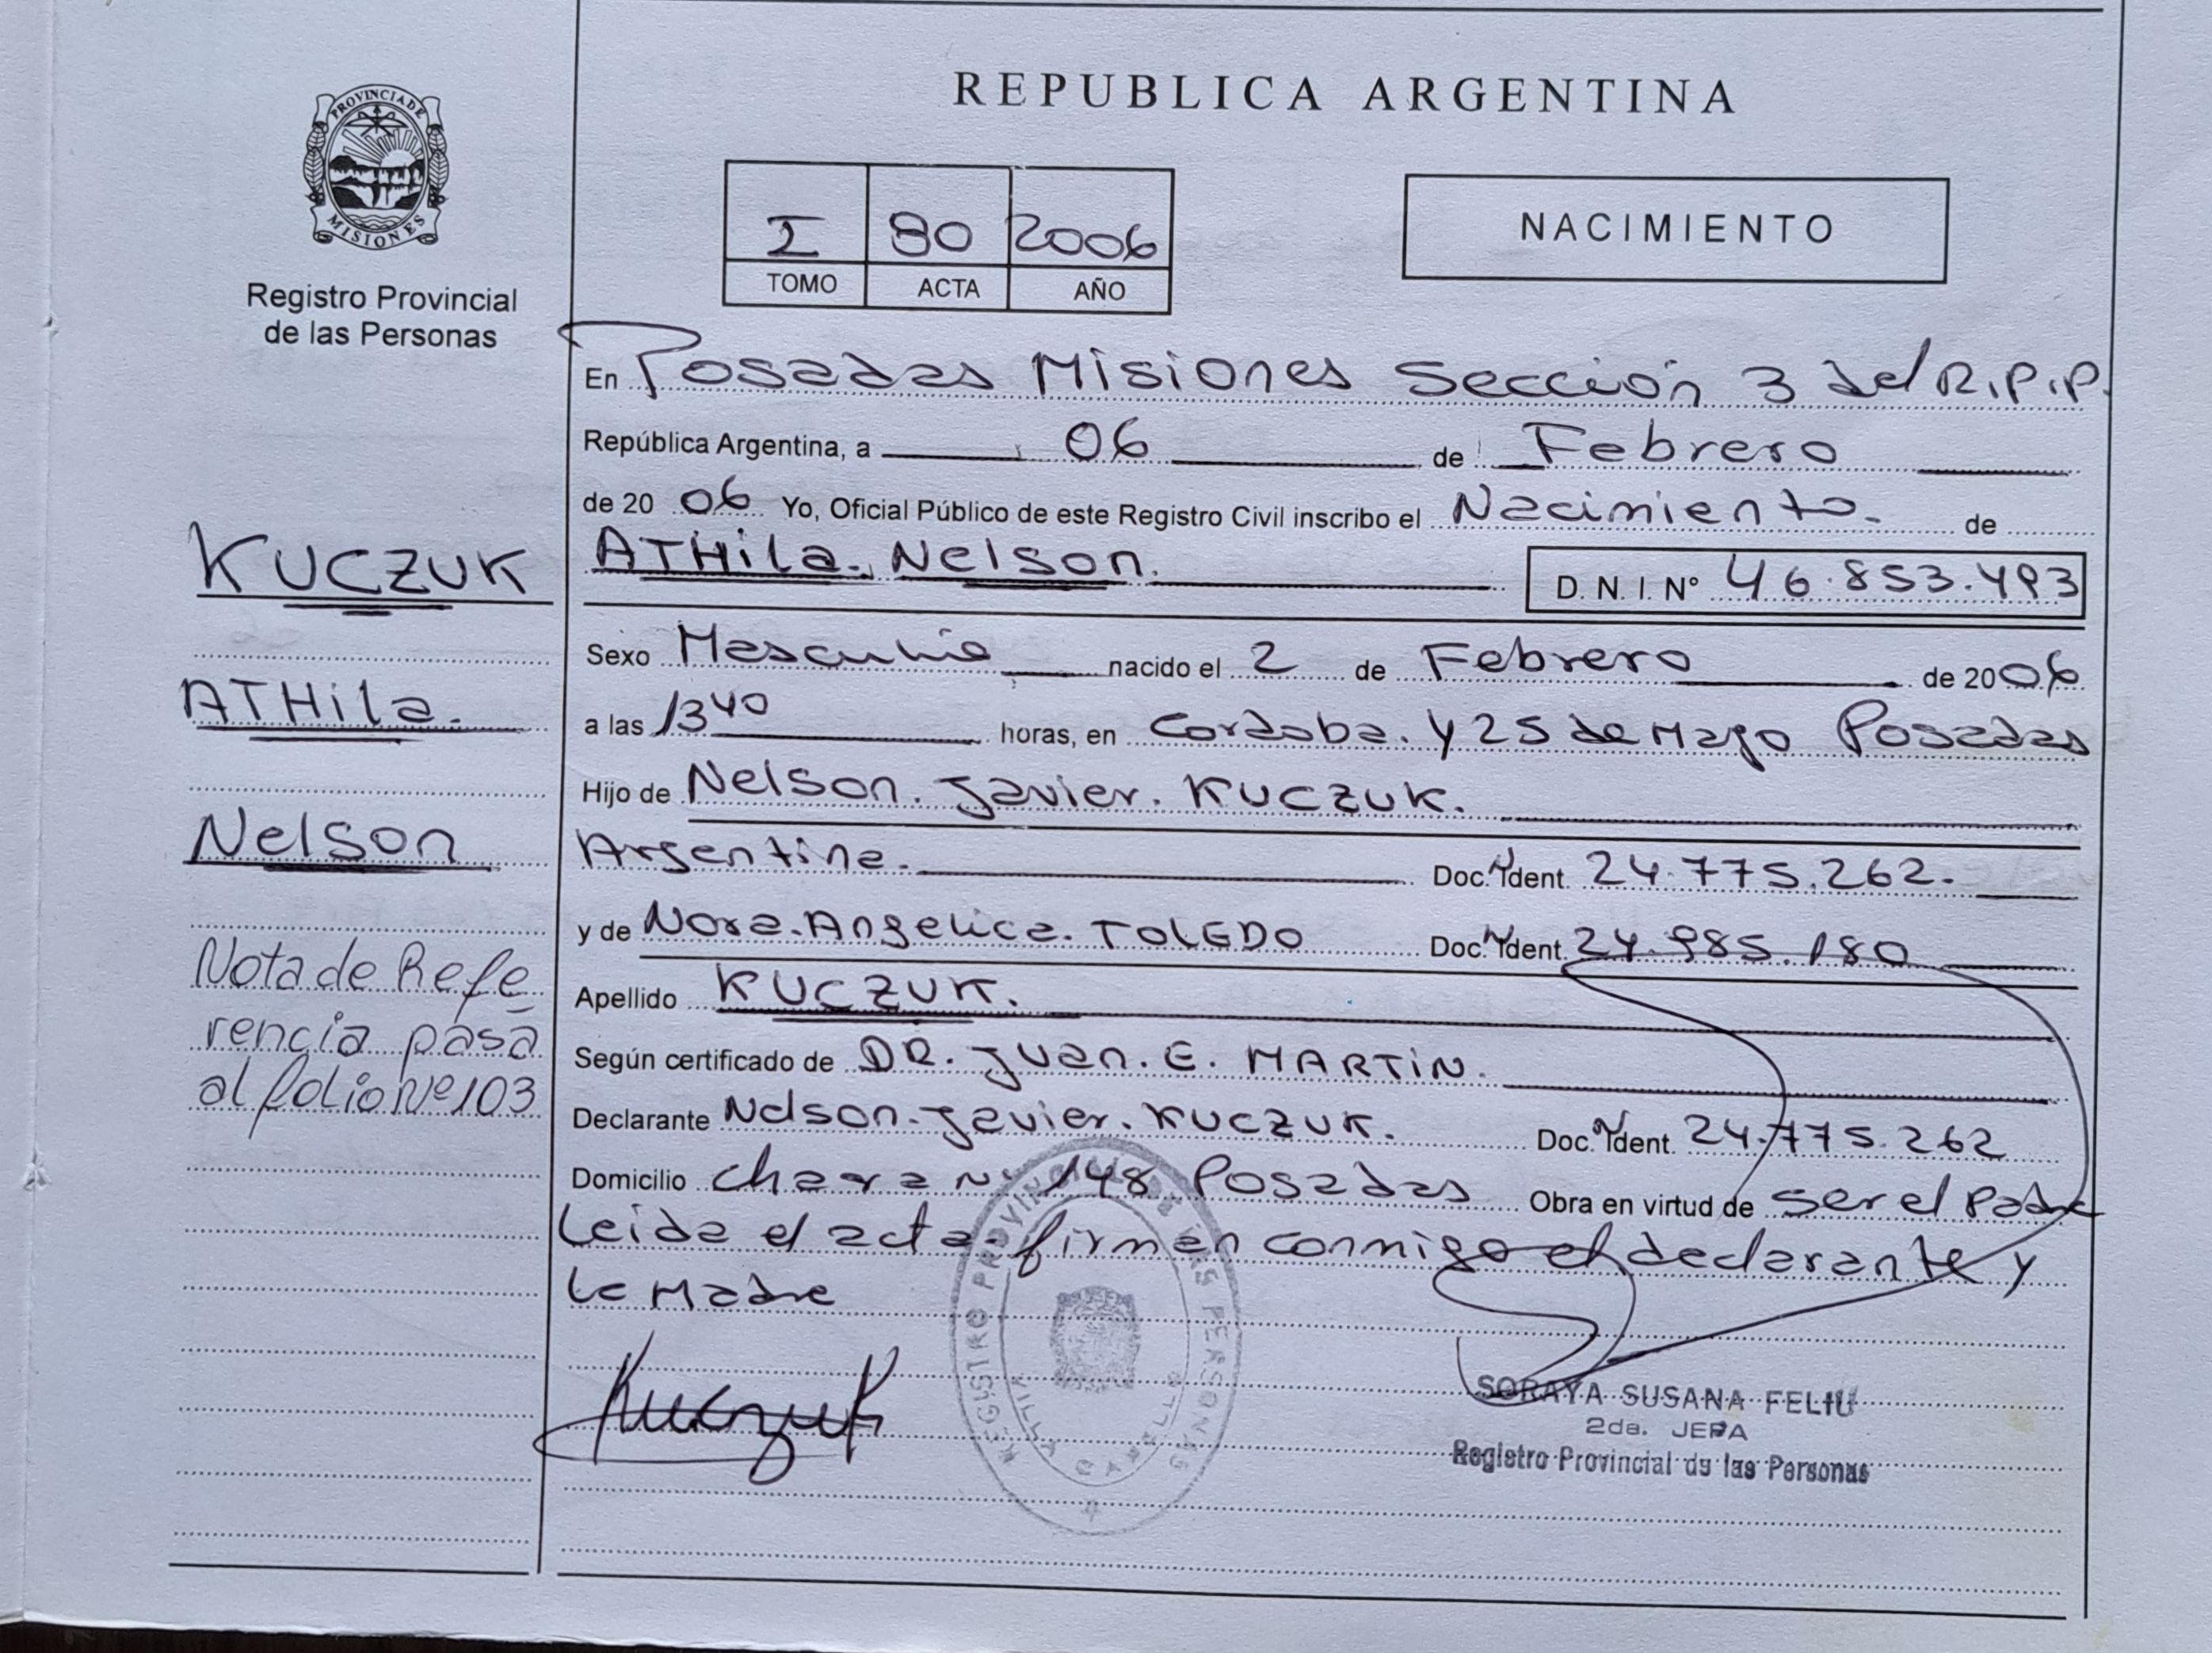 REPUBLICA ARGENTINA
PROVINCIA DE
MISIONES
Registro Provincial
de las Personas
I 80 2006
TOMO ACTA AÑO
NACIMIENTO
En Posadas Misiones Sección 3 del R.P.P.
República Argentina, a 06 de Febrero
de 2006 Yo, Oficial Público de este Registro Civil inscribo el Nacimiento. de
ATHila. Nelson. D. N. I. Nº 46.853.493
Sexo Masculino nacido el 2 de Febrero de 2006
a las 1340 horas, en Cordoba. y 25 de Mayo Posadas
Hijo de Nelson. Javier. KUCZUK.
Argentina. Doc. Ident. 24.775.262.
y de Nora. Angelica. TOLEDO Doc. Ident. 24.985.180
Apellido KUCZUK.
Según certificado de DR. Juan. E. MARTIN.
Declarante Nelson. Javier. KUCZUK. Doc. Ident. 24.775.262
Domicilio chacra Nº 148 Posadas Obra en virtud de ser el Padre
Leida el acta. firman conmigo el declarante y
la Madre
KUCZUK
ATHila.
Nelson
Nota de Refe
rencia pasa
al folio Nº 103
Kuczuk
REGISTRO PROVINCIAL DE LAS PERSONAS
VILLA CABELLO
SORAYA SUSANA FELIU
2da. JEFA
Registro Provincial de las Personas